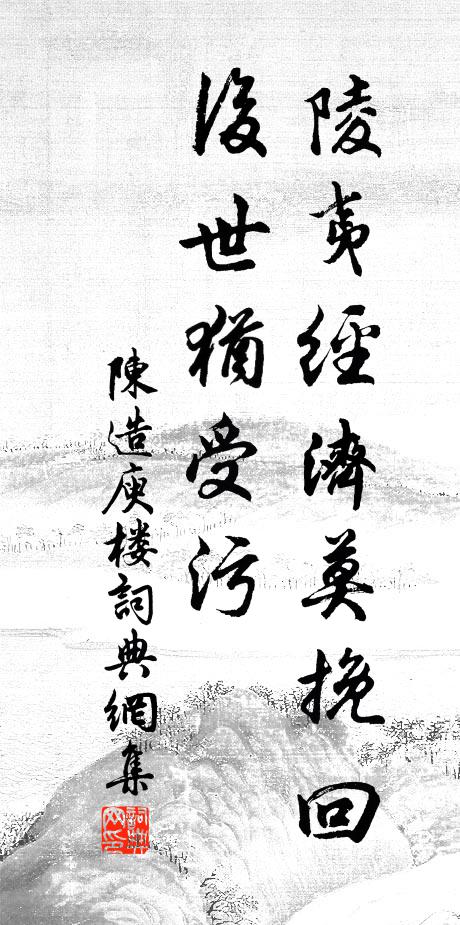 陵夷經濟莫挽回
後世猶受污
陳造庾楼詞典網集